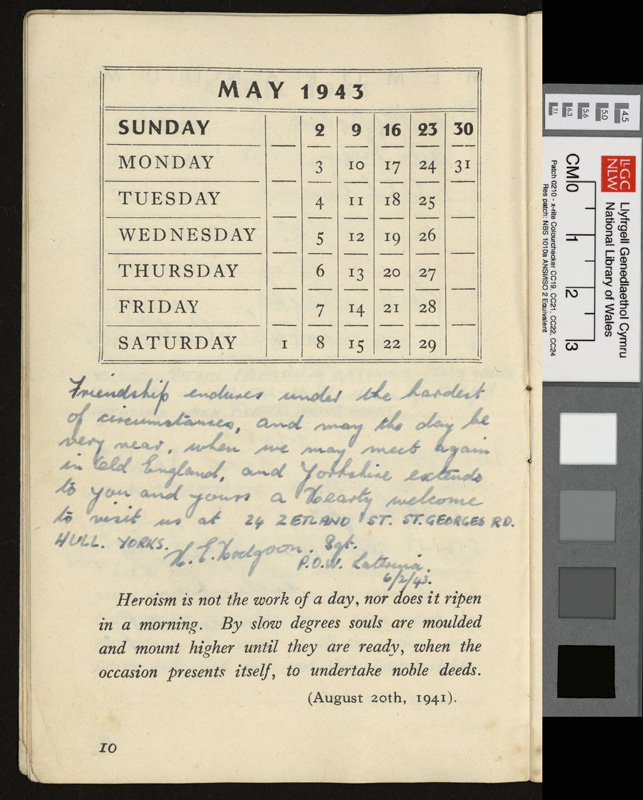 MAY 1943
SUNDAY 2 9 16 23 30
MONDAY 3 10 17 24 31
TUESDAY 4 11 18 25
WEDNESDAY 5 12 19 26
THURSDAY 6 13 20 27
FRIDAY 7 14 21 28
SATURDAY 1 8 15 22 29
Friendship endures under the hardest
of circumstances, and may the day be
very near, when we may meet again
in Old England, and Yorkshire extends
to you and yours a Hearty welcome
to visit us at 24 ZETLAND ST. ST. GEORGES RD.
HULL. YORKS. H. E. Hodgson. Sgt.
P.O.W. Laterina.
6/2/43.
Heroism is not the work of a day, nor does it ripen
in a morning. By slow degrees souls are moulded
and mount higher until they are ready, when the
occasion presents itself, to undertake noble deeds.
(August 20th, 1941).
10
LLGC
NLW
Llyfrgell Genedlaethol Cymru
National Library of Wales
CM 0 1 2 3